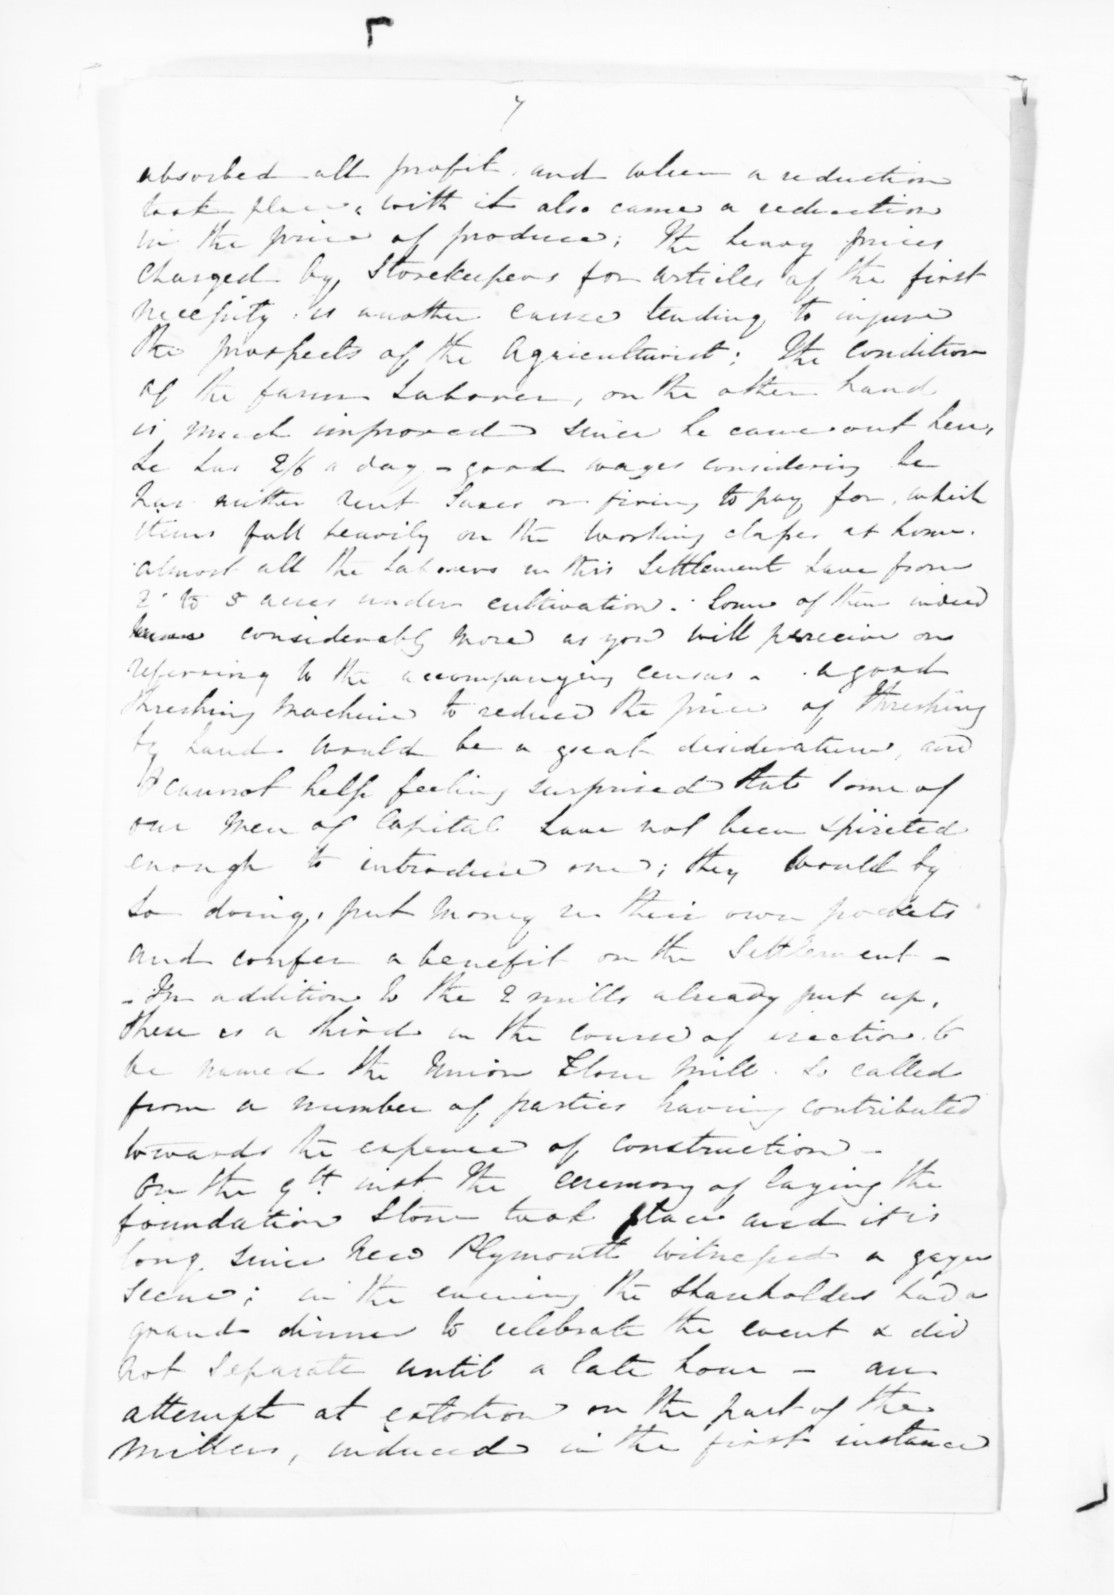 7
absorbed all profit, and when a reduction
took place, with it also came a reduction
in the price of produce; The heavy prices
charged by Storekeepers for articles of the first
necessity is another cause tending to injure
the prospects of the Agriculturist; The condition
of the farm Laborer, on the other hand
is much improved since he came out here,
he has 2/6 a day - good wages considering he
has neither rent taxes or firing to pay for, which
items fall heavily on the working classes at home.
almost all the Laborers in this Settlement have from
2 to 5 acres under cultivation. Some of them indeed
have considerably more as you will perceive on
referring to the accompanying census - a good
threshing Machine to reduce the price of threshing
by hand would be a great desideratum, and
I cannot help feeling surprised that some of
our Men of Capital have not been spirited
enough to introduce one; they would by
so doing, put money in their own pockets
and confer a benefit on the Settlement -
- In addition to the 2 mills already put up,
there is a third in the course of erection to
be named the Union Flour Mill. So called
from a number of parties having contributed
towards the expence of construction -
On the 9th inst. the ceremony of laying the
foundation Stone took place and it is
long since New Plymouth witnessed a gayer
scene; in the evening the Shareholders had a
grand dinner to celebrate the event & did
not separate until a late hour - an
attempt at extortion on the part of the
Millers, induced in the first instance